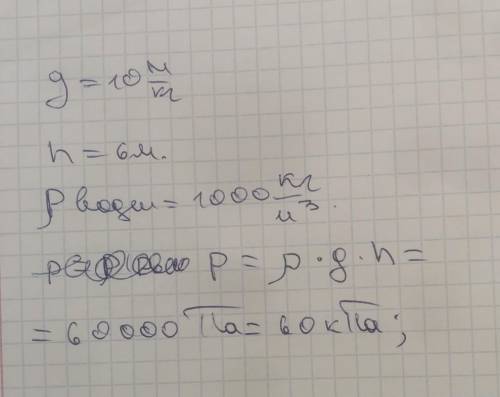 g = 10 м/кг
h = 6 м.
ρ воды = 1000 кг/м³.
p = ρ · g · h =
= 60000 Па = 60 кПа;